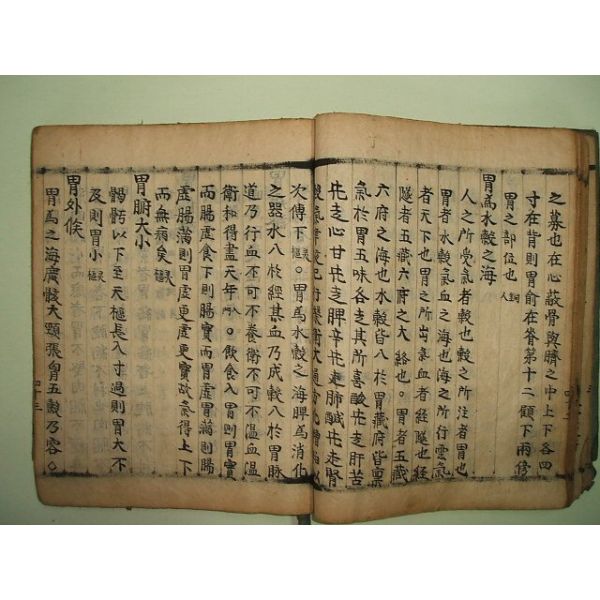 之募也在心蔽骨與臍之中上下各四
寸在背則胃俞在脊第十二顀下兩傍
胃之部位也 銅人
胃為水穀之海
人之所受氣者穀也穀之所注者胃也
胃者水穀氣血之海也海之所行雲氣
者天下也胃之所出氣血者經隧也經
隧者五藏六府之大絡也。胃者五藏
六府之海也水穀皆入於胃藏府皆稟
氣於胃五味各走其所喜酸先走肝苦
先走心甘先走脾辛先走肺鹹先走腎
穀氣津液已行榮衛大通乃化糟粕以
次傳下 灵樞 。胃為水穀之海脾為消化
之器水入於經其血乃成穀入於胃脉
道乃行血不可不養衛不可不溫血溫
衛和得盡天年 入門 。飲食入胃則胃實
而腸虛食下則腸實而胃虛胃滿則腸
虛腸滿則胃虛更虛更實故氣得上下
而無病矣 灵樞
胃腑大小
䯏骬以下至天樞長八寸過則胃大不
及則胃小 灵樞
胃外候
胃為之海廣骸大頸張胷五穀乃容。
四十三